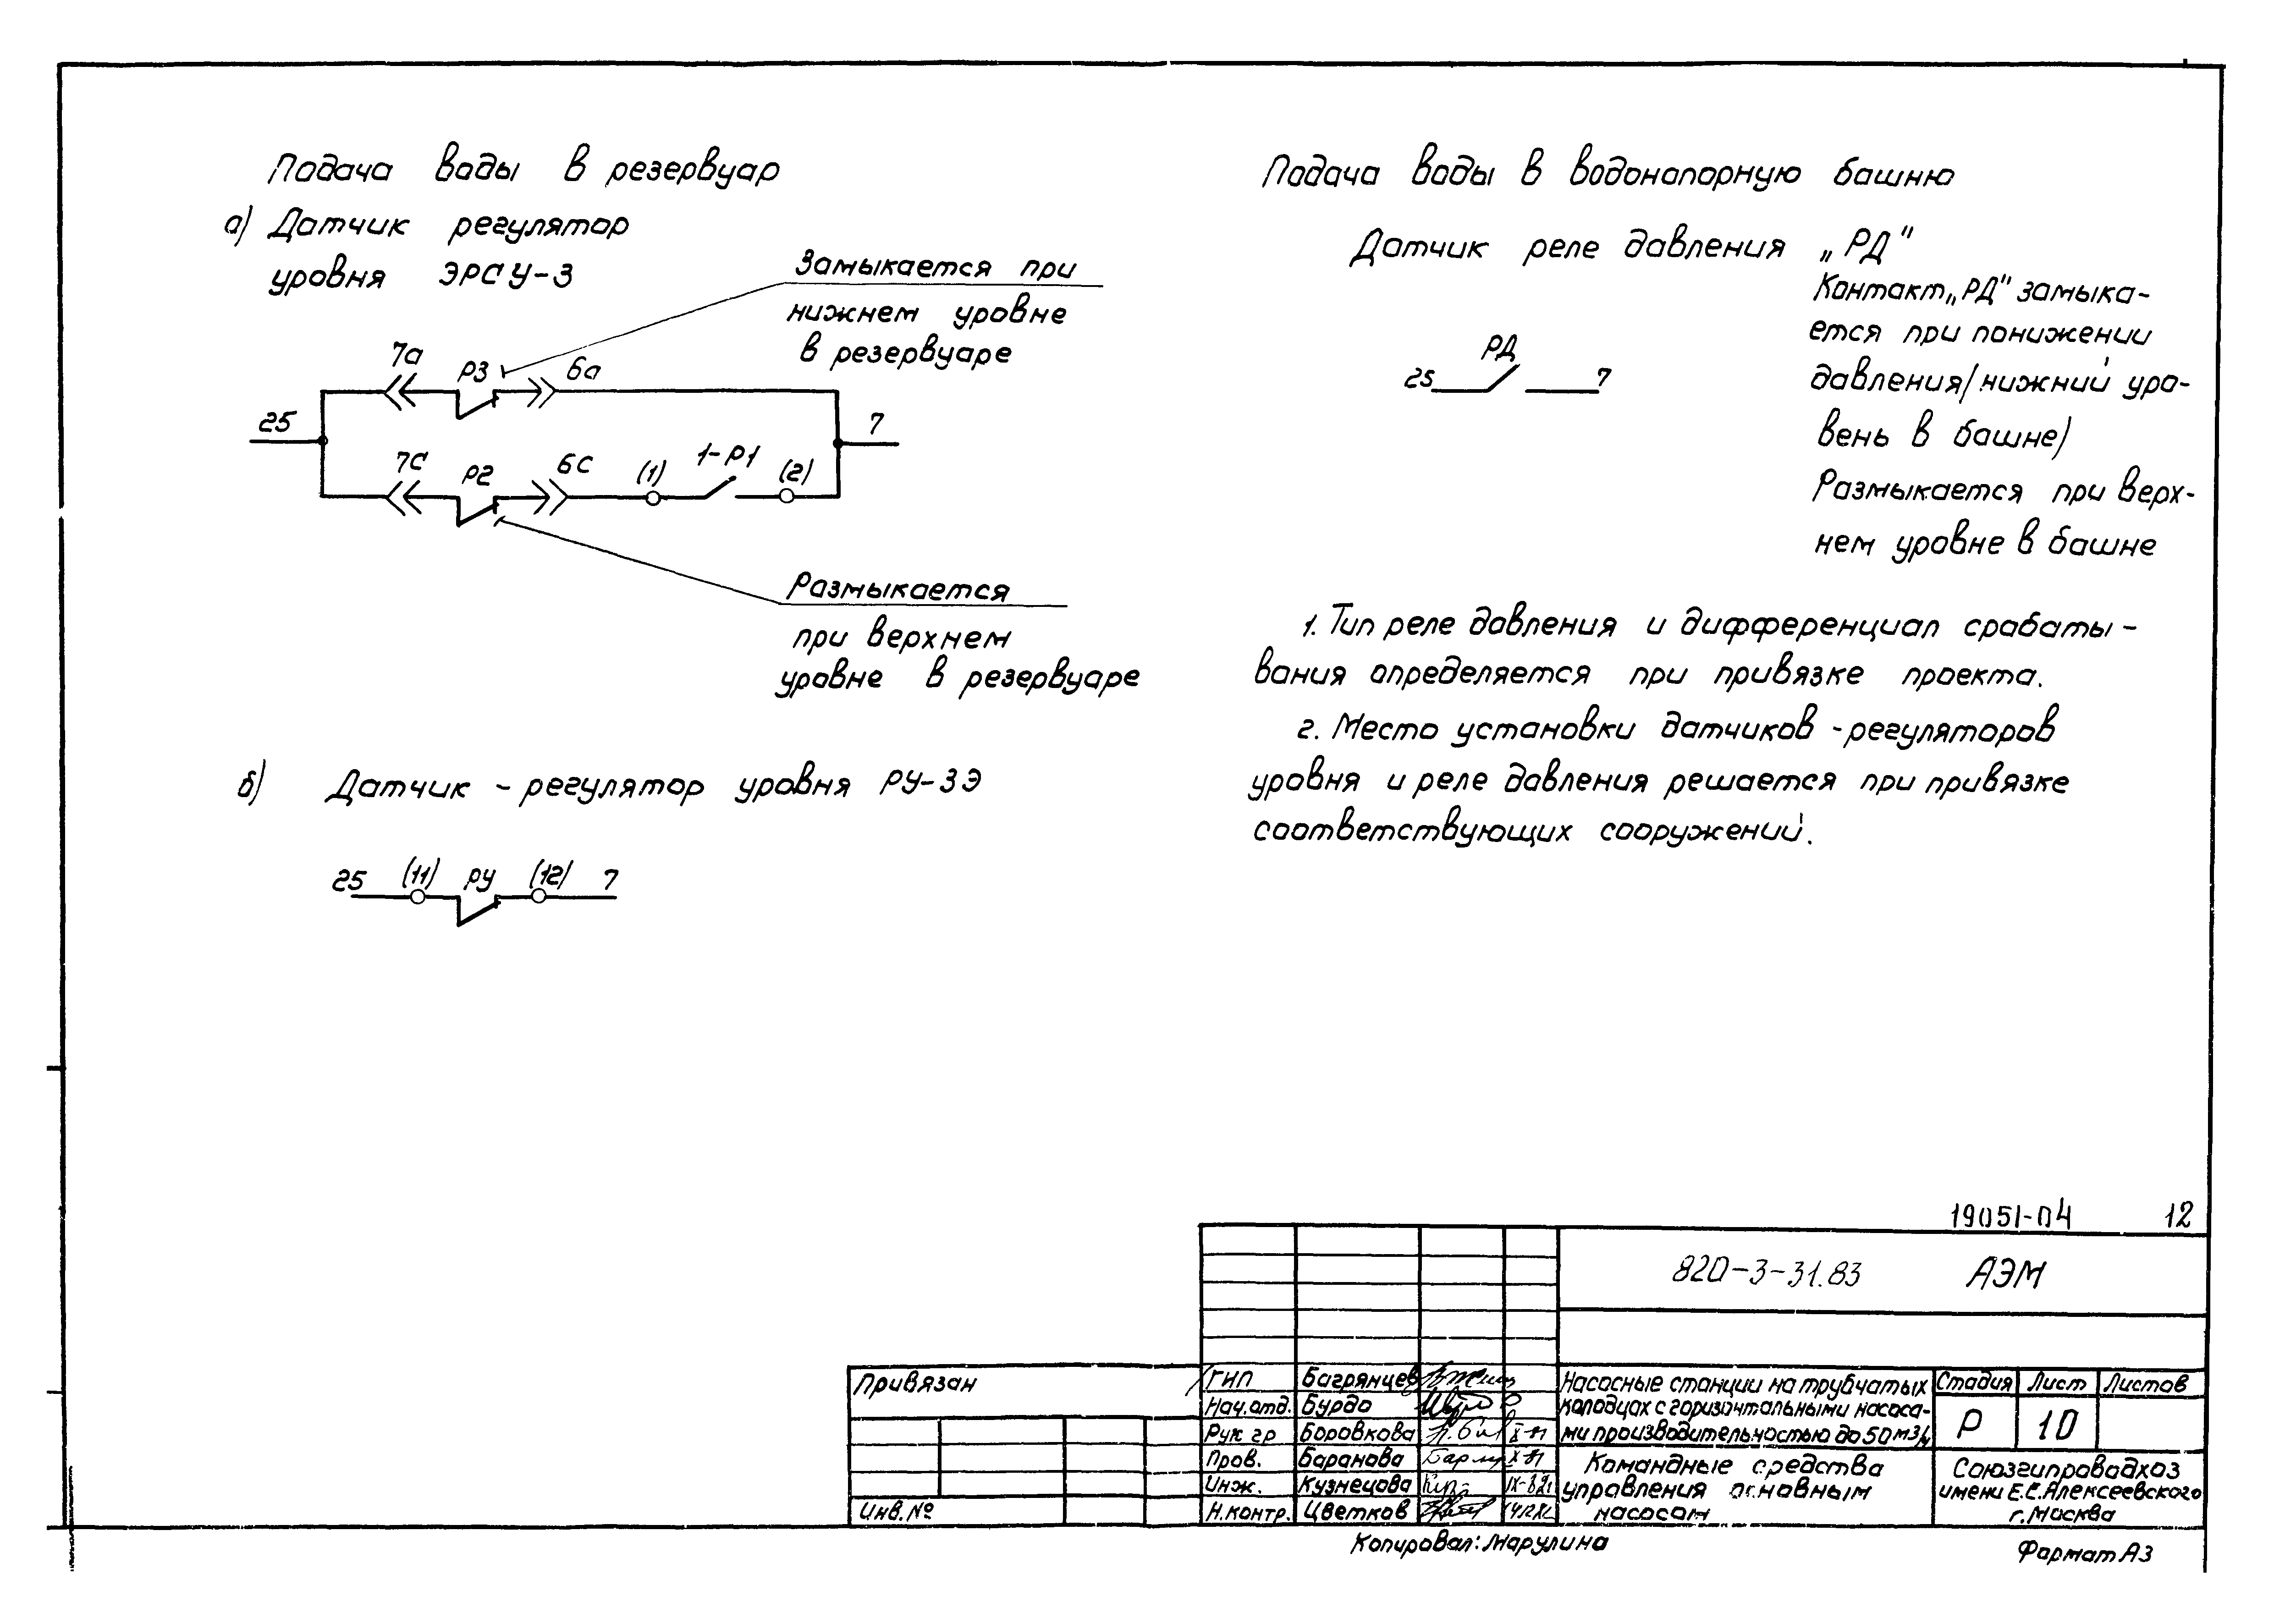 Подача воды в резервуар
а) Датчик регулятор
уровня ЭРСУ-3
Замыкается при
нижнем уровне
в резервуаре
7а Р3 6а
25 7
7С Р2 6С (1) 1-Р1 (2)
Размыкается
при верхнем
уровне в резервуаре
б) Датчик - регулятор уровня РУ-3Э
25 (11) РУ (12) 7
Подача воды в водонапорную башню
Датчик реле давления „РД"
Контакт „РД" замыка-
ется при понижении
давления/нижний уро-
вень в башне)
Размыкается при верх-
нем уровне в башне
РД
25 7
1. Тип реле давления и дифференциал срабаты-
вания определяется при привязке проекта.
2. Место установки датчиков-регуляторов
уровня и реле давления решается при привязке
соответствующих сооружений.
19051-04 12
820-3-31.83 АЭМ
Привязан
Инв.№
ГИП Багрянцев
Нач.отд. Бурдо
Рук гр Боровкова X-81
Пров. Баранова X-81
Инж. Кузнецова
Н.контр. Цветков
Насосные станции на трубчатых
колодцах с горизонтальными насоса-
ми производительностью до 50 м3/ч
Стадия Лист Листов
Р 10
Командные средства
управления основным
насосом
Союзгипроводхоз
имени Е.Е.Алексеевского
г.Москва
Копировал: Марулина
Формат А3